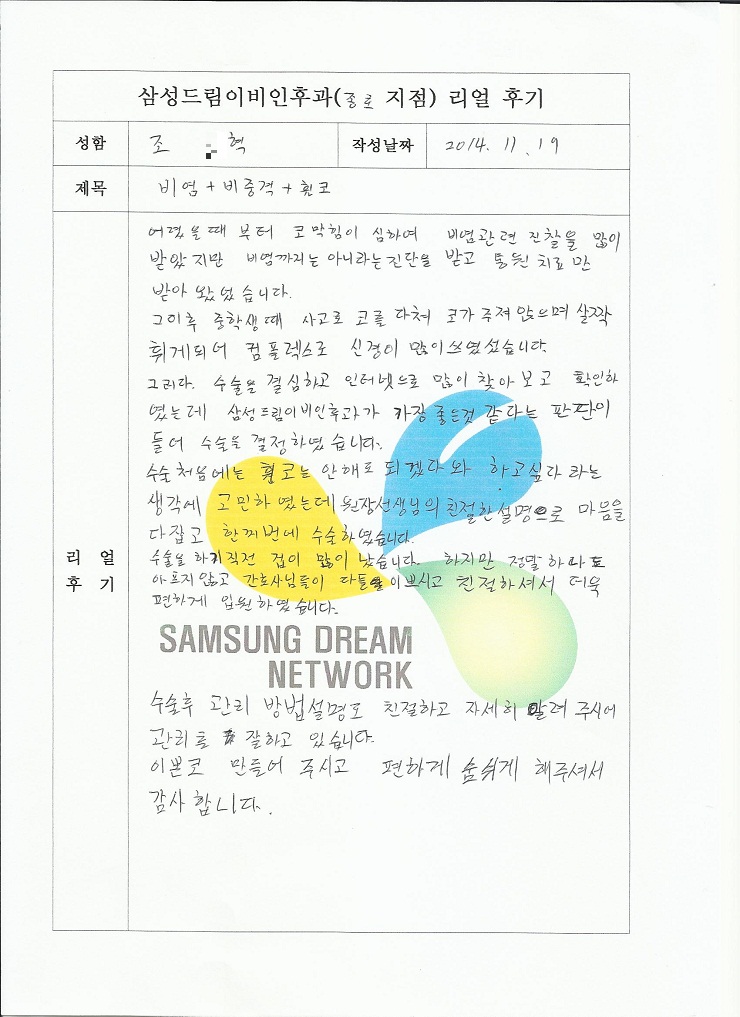 삼성드림이비인후과(종로 지점) 리얼 후기
성함 조 혁 작성날짜 2014. 11. 19
제목 비염 + 비중격 + 휜코
어렸을때 부터 코막힘이 심하여 비염관련 진찰을 많이
받았지만 비염까지는 아니라는 진단을 받고 통원 치료만
받아 왔었습니다.
그이후 중학생때 사고로 코를 다쳐 코가 주저 앉으며 살짝
휘게되어 컴플렉스로 신경이 많이쓰였었습니다.
그러다. 수술을 결심하고 인터넷으로 많이 찾아보고 확인하
였는데 삼성드림이비인후과가 가장 좋은것 같다는 판단이
들어 수술을 결정하였습니다.
수술 처음에는 휜코는 안해도 되겠다와 하고싶다 라는
생각에 고민하였는데 원장선생님의 친절한설명으로 마음을
다잡고 한꺼번에 수술하였습니다.
수술을 하기직전 겁이 많이 났습니다. 하지만 정말 하나도
아프지않고 간호사님들이 다들 이쁘시고 친절하셔서 더욱
편하게 입원하였습니다.
리 얼
후 기
SAMSUNG DREAM
NETWORK
수술후 관리 방법설명도 친절하고 자세히 알려 주시어
관리를 잘하고 있습니다.
이쁜코 만들어 주시고 편하게 숨쉬게 해주셔서
감사합니다.